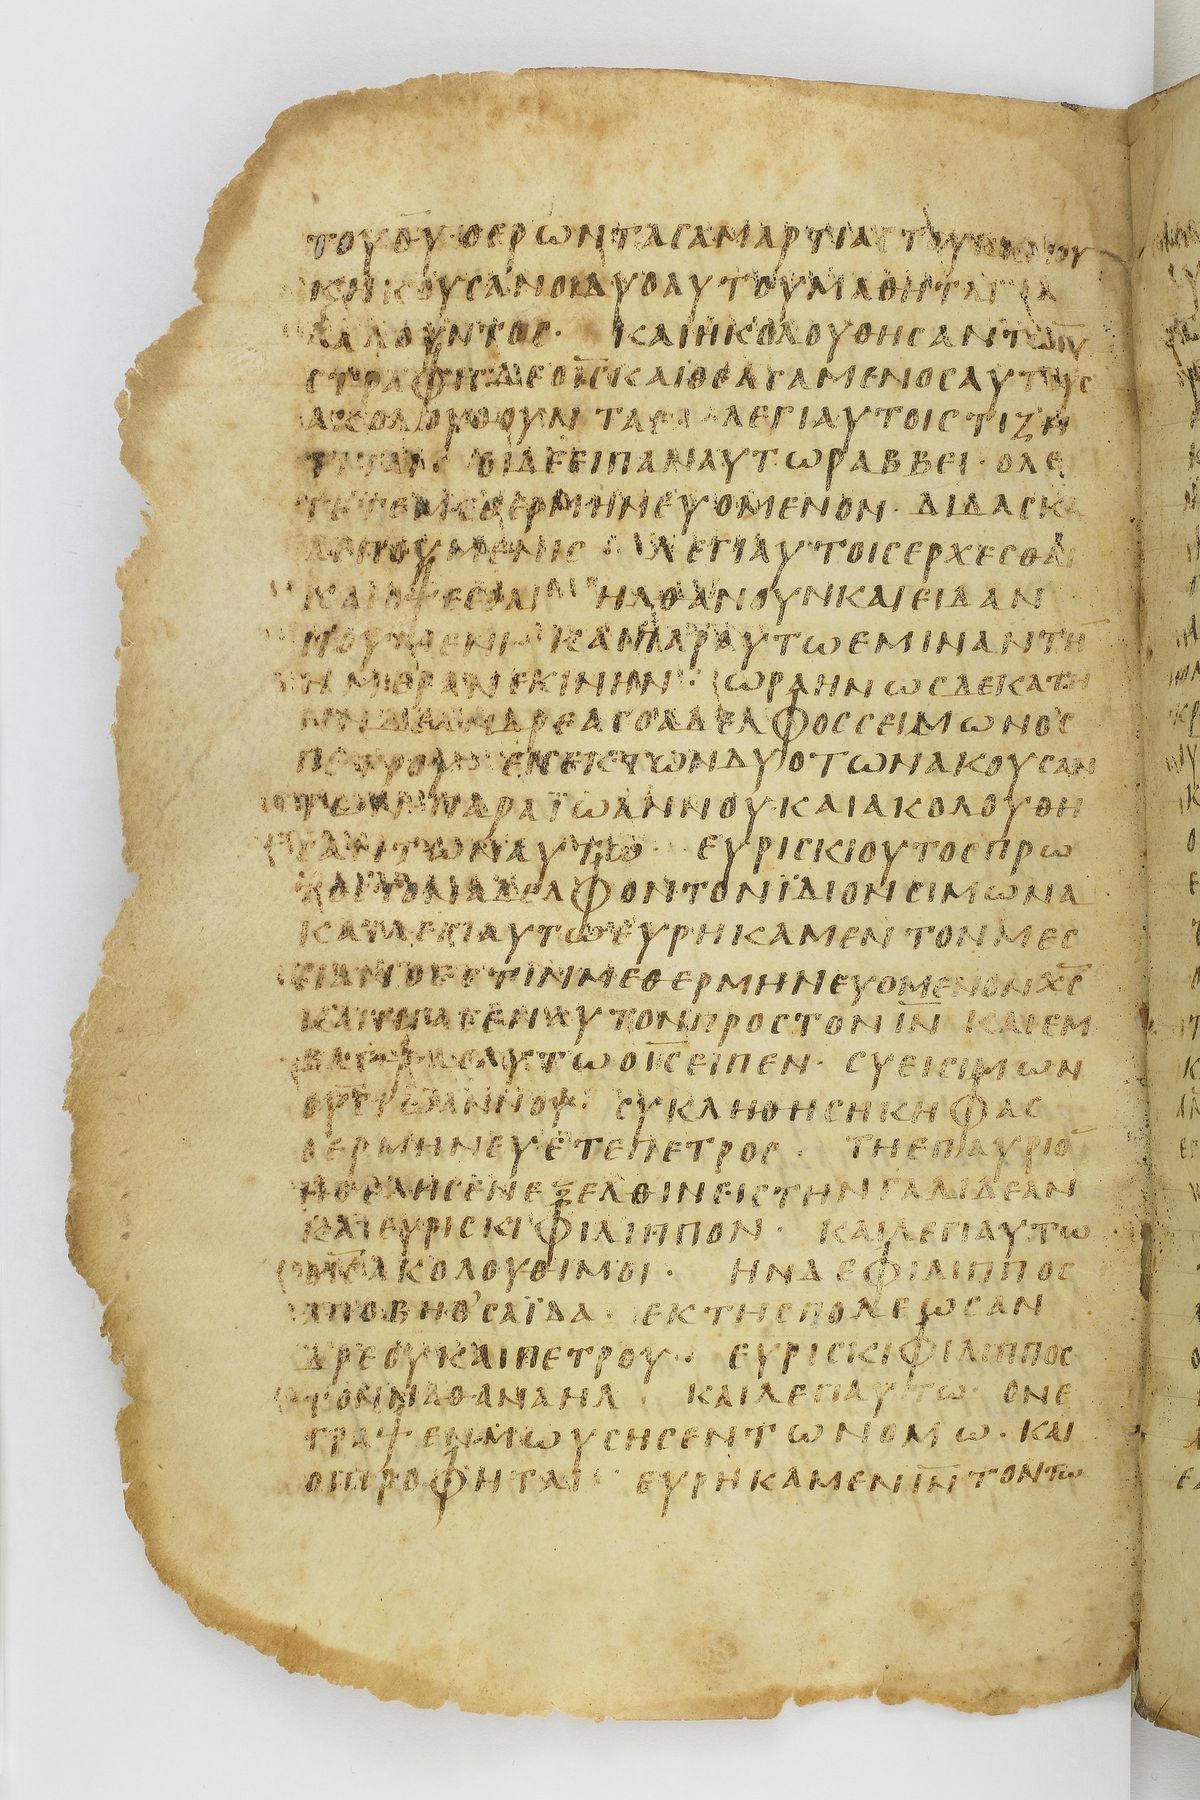 ΤΟΥ Θ̅Υ̅ · Ο ΕΡΩΝ ΤΑΣ ΑΜΑΡΤΙΑΣ ΤΟΥ ΚΟΣΜΟΥ
ΚΗΚΟΥΣΑΝ ΟΙ ΔΥΟ ΑΥΤΟΥ ΜΑΘΗΤΑΙ
ΛΑΛΟΥΝΤΟΣ · ΚΑΙ ΗΚΟΛΟΥΘΗΣΑΝ ΤΩ Ι̅Υ̅
ΣΤΡΑΦΙΣ ΔΕ Ο Ι̅Σ̅ ΚΑΙ ΘΕΑΣΑΜΕΝΟΣ ΑΥΤΟΥΣ
ΑΚΟΛΟΥΘΟΥΝΤΑΣ ΛΕΓΙ ΑΥΤΟΙΣ ΤΙ ΖΗ
ΤΙΤΑΙ · ΟΙ ΔΕ ΕΙΠΑΝ ΑΥΤΩ ΡΑΒΒΕΙ · Ο ΛΕ
ΕΡΜΗΝΕΥΟΜΕΝΟΝ · ΔΙΔΑΣΚΑ
ΛΕ ΠΟΥ ΜΕΝΙΣ · ΛΕΓΙ ΑΥΤΟΙΣ ΕΡΧΕΣΘΑΙ
ΚΑΙ ΟΨΕΣΘΑΙ ΗΛΘΑΝ ΟΥΝ ΚΑΙ ΕΙΔΑΝ
ΠΟΥ ΜΕΝΙ ΚΑΙ ΠΑΡ ΑΥΤΩ ΕΜΙΝΑΝ ΤΗ̅
ΗΜΕΡΑΝ ΕΚΙΝΗΝ · ΩΡΑ ΗΝ ΩΣ ΔΕΚΑΤΗ
ΗΝ ΔΕ ΑΝΔΡΕΑΣ Ο ΑΔΕΛΦΟΣ ΣΕΙΜΩΝΟΣ
ΠΕΤΡΟΥ ΕΙΣ ΕΚ ΤΩΝ ΔΥΟ ΤΩΝ ΑΚΟΥΣΑΝ
ΤΩΝ ΠΑΡΑ ΪΩΑΝΝΟΥ ΚΑΙ ΑΚΟΛΟΥΘΗ
ΣΑΝΤΩΝ ΑΥΤΩ · ΕΥΡΙΣΚΙ ΟΥΤΟΣ ΠΡΩ
ΤΟΝ ΑΔΕΛΦΟΝ ΤΟΝ ΪΔΙΟΝ ΣΙΜΩΝΑ
ΚΑΙ ΛΕΓΙ ΑΥΤΩ ΕΥΡΗΚΑΜΕΝ ΤΟΝ ΜΕΣ
ΣΙΑΝ Ο ΕΣΤΙΝ ΜΕΘΕΡΜΗΝΕΥΟΜΕΝΟΝ Χ̅Σ̅
ΚΑΙ ΗΓΑΓΕΝ ΑΥΤΟΝ ΠΡΟΣ ΤΟΝ Ι̅Ν̅ ΚΑΙ ΕΜ
ΒΛΕΨΑΣ ΑΥΤΩ Ο Ι̅Σ̅ ΕΙΠΕΝ · ΣΥ ΕΙ ΣΙΜΩΝ
Ο ΥΣ ΪΩΑΝΝΟΥ · ΣΥ ΚΛΗΘΗΣΗ ΚΗΦΑΣ
Ο ΕΡΜΗΝΕΥΕΤΕ ΠΕΤΡΟΣ · ΤΗ ΕΠΑΥΡΙΟ̅
ΗΘΕΛΗΣΕΝ ΕΞΕΛΘΙΝ ΕΙΣ ΤΗΝ ΓΑΛΙΛΕΑΝ
ΚΑΙ ΕΥΡΙΣΚΙ ΦΙΛΙΠΠΟΝ · ΚΑΙ ΛΕΓΙ ΑΥΤΩ
Ο Ι̅Σ̅ ΑΚΟΛΟΥΘΙ ΜΟΙ · ΗΝ ΔΕ ΦΙΛΙΠΠΟΣ
ΑΠΟ ΒΗΘ’ΣΑΪΔΑ · ΕΚ ΤΗΣ ΠΟΛΕΩΣ ΑΝ
ΔΡΕΟΥ ΚΑΙ ΠΕΤΡΟΥ · ΕΥΡΙΣΚΙ ΦΙΛΙΠΠΟΣ
ΤΟΝ ΝΑΘΑΝΑΗΛ · ΚΑΙ ΛΕΓΙ ΑΥΤΩ · ΟΝ Ε
ΓΡΑΨΕΝ ΜΩΥΣΗΣ ΕΝ ΤΩ ΝΟΜΩ · ΚΑΙ
ΟΙ ΠΡΟΦΗΤΑΙ · ΕΥΡΗΚΑΜΕΝ Ι̅Ν̅ ΤΟΝ ΤΩ